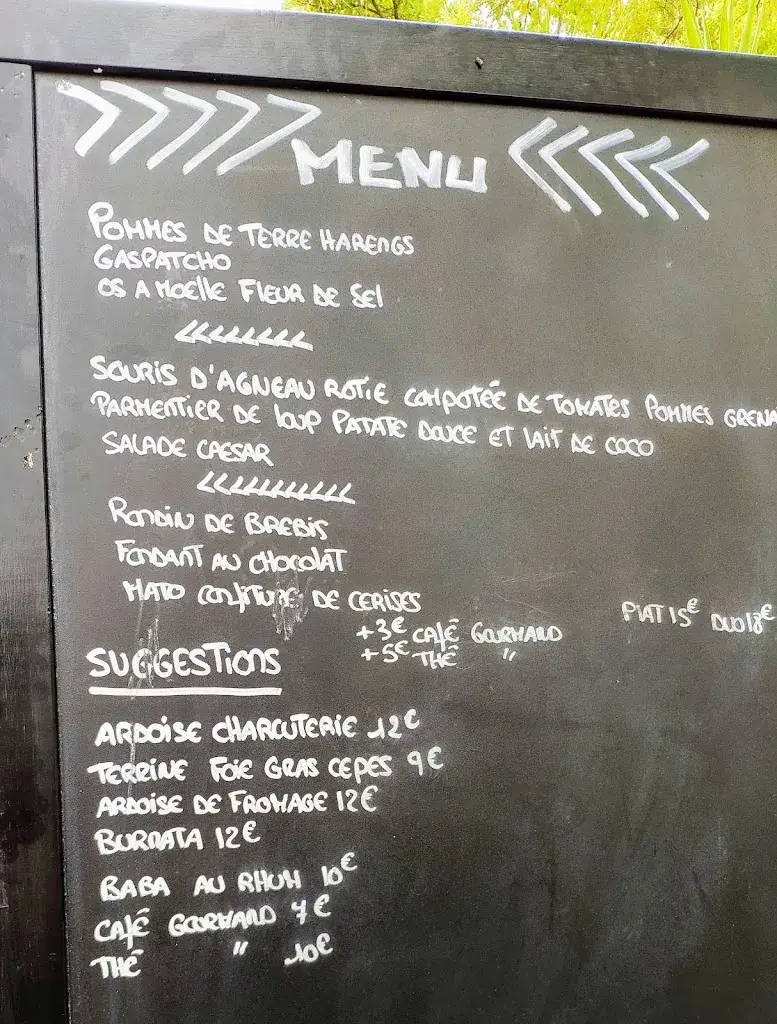 MENU
POMMES DE TERRE HARENGS
GASPATCHO
OS A MOELLE FLEUR DE SEL
SOURIS D'AGNEAU ROTIE COMPOTÉE DE TOMATES POMMES GRENA
PARMENTIER DE LOUP PATATE DOUCE ET LAIT DE COCO
SALADE CAESAR
RONDIN DE BREBIS
FONDANT AU CHOCOLAT
MATO CONFITURE DE CERISES
PLAT 15€ DUO 18€
+3€ CAFÉ GOURMAND
+5€ THÉ "
SUGGESTIONS
ARDOISE CHARCUTERIE 12€
TERRINE FOIE GRAS CEPES 9€
ARDOISE DE FROMAGE 12€
BURRATA 12€
BABA AU RHUM 10€
CAFÉ GOURMAND 7€
THÉ " 10€